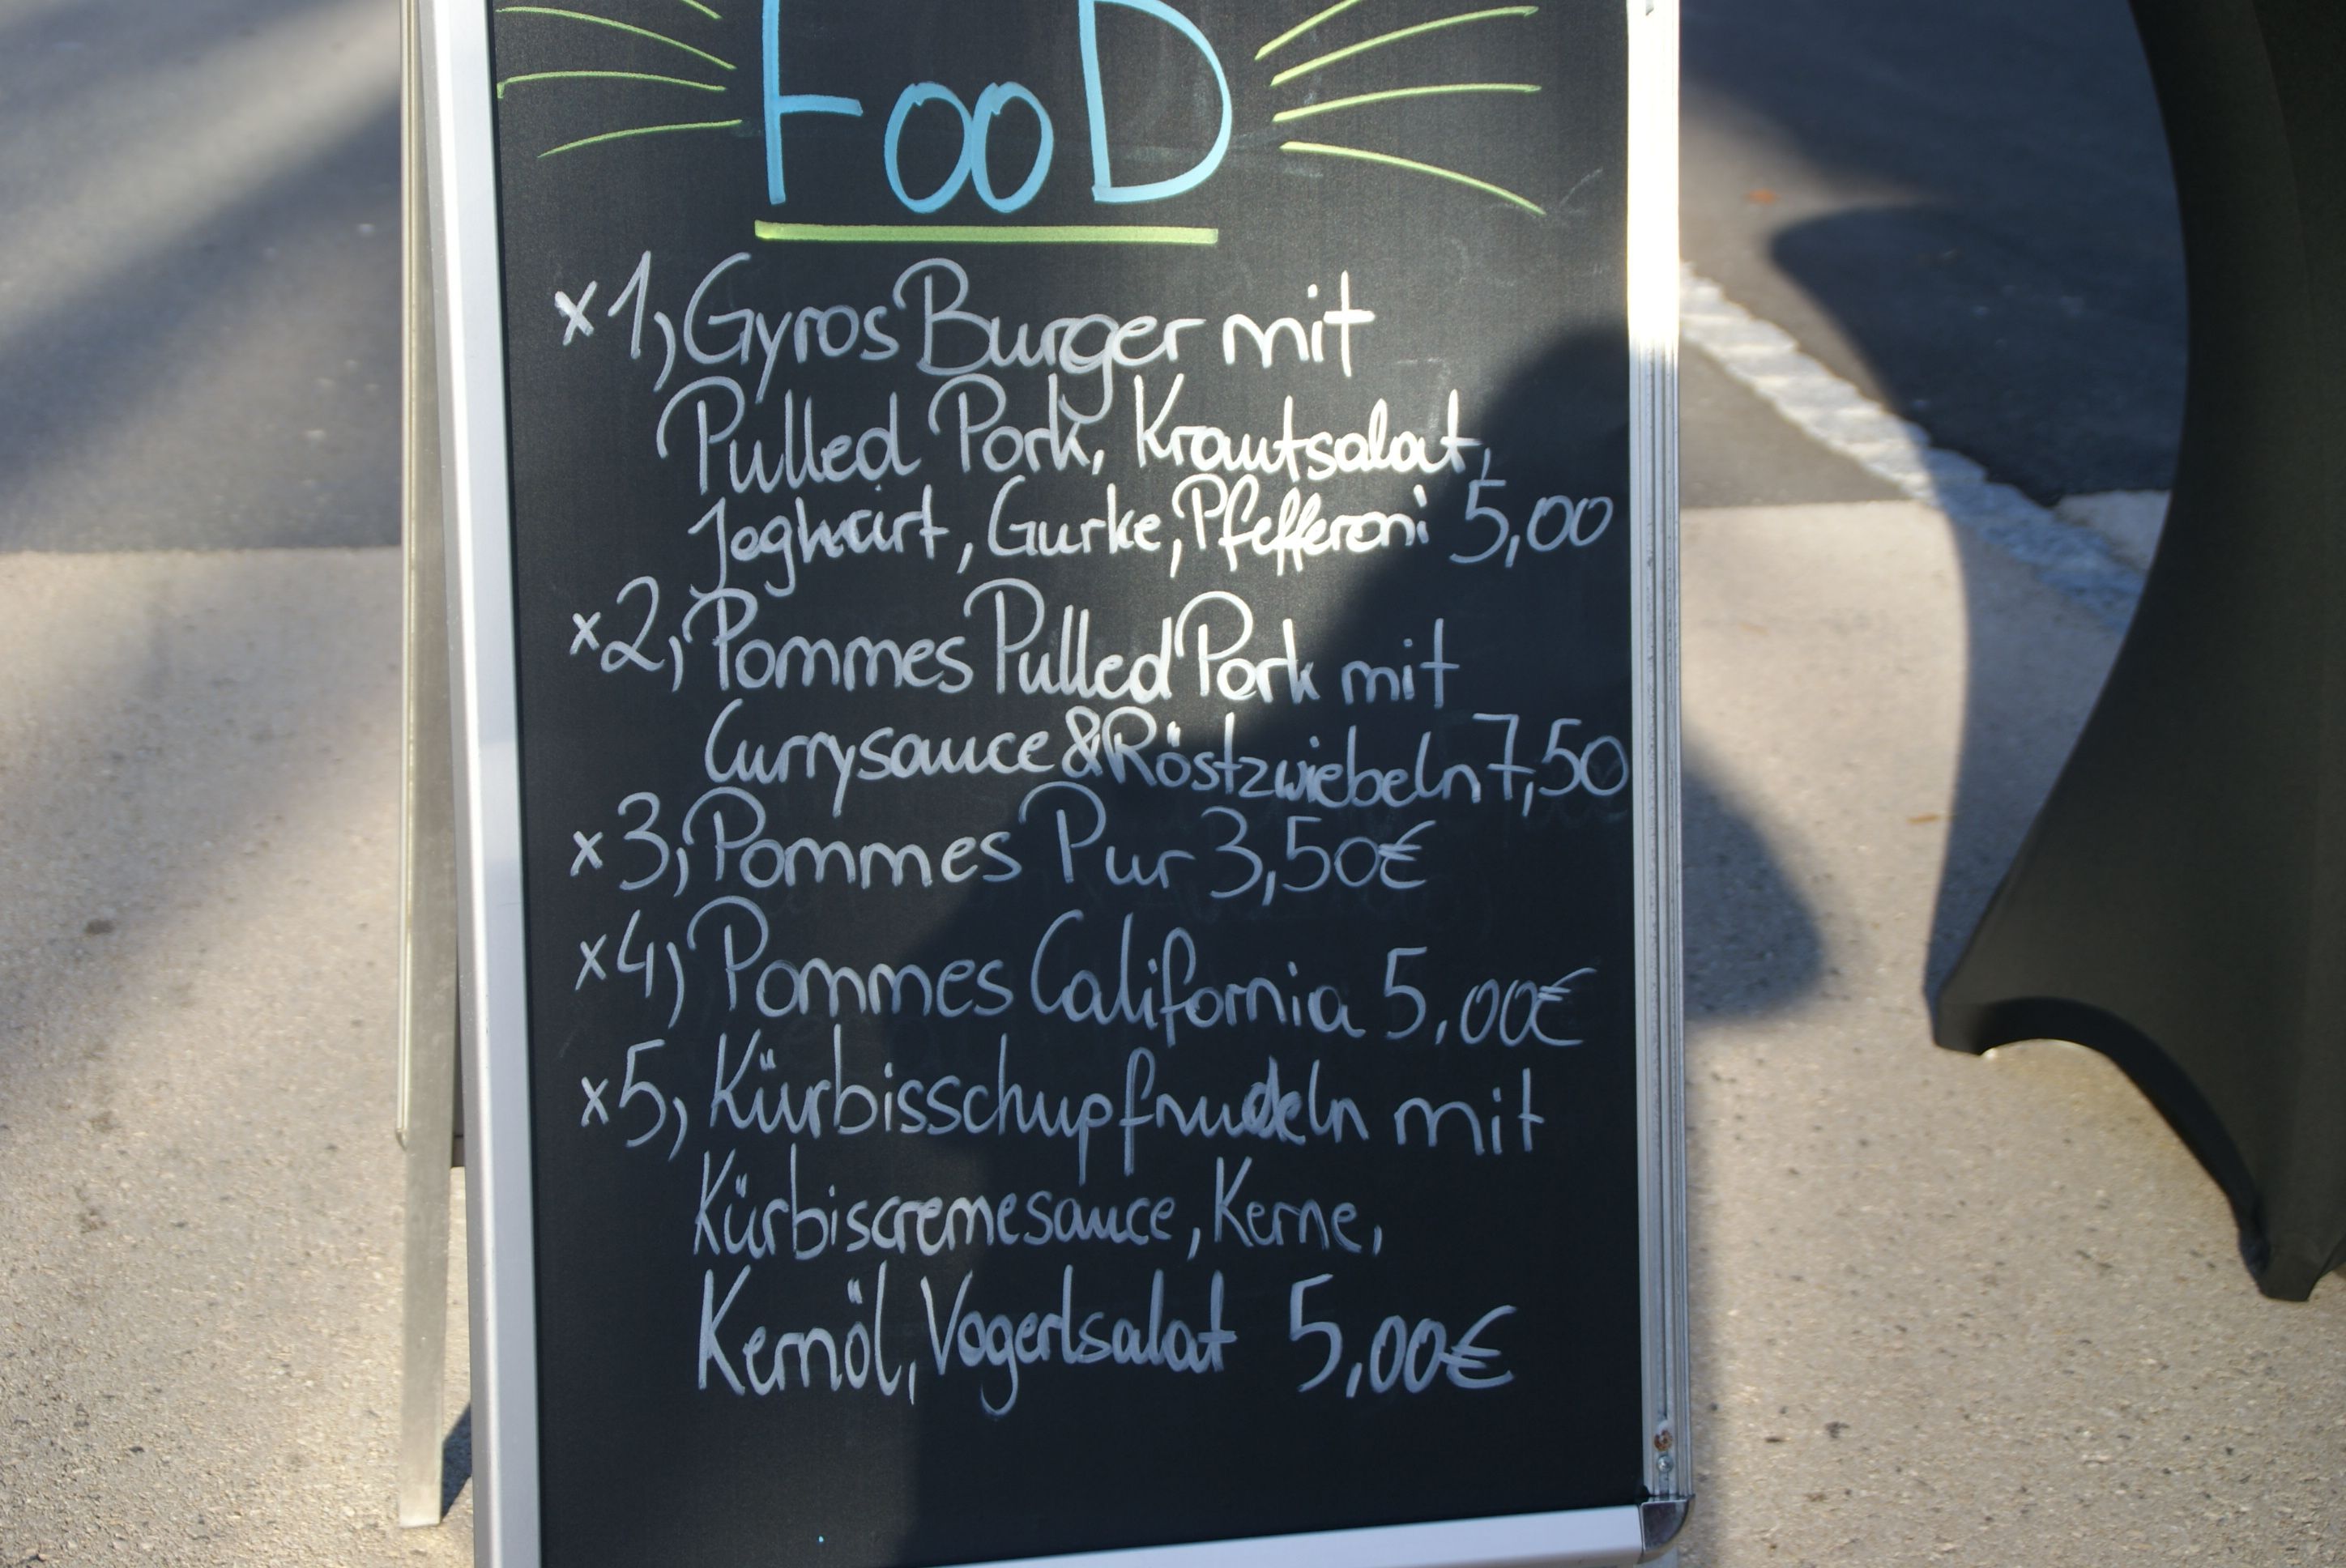 FooD
x 1, Gyros Burger mit
Pulled Pork, Krautsalat,
Joghurt, Gurke, Pfefferoni 5,00
x 2, Pommes Pulled Pork mit
Currysauce & Röstzwiebeln 7,50
x 3, Pommes Pur 3,50€
x 4, Pommes California 5,00€
x 5, Kürbisschupfnudeln mit
Kürbiscremesauce, Kerne,
Kernöl, Vogerlsalat 5,00€